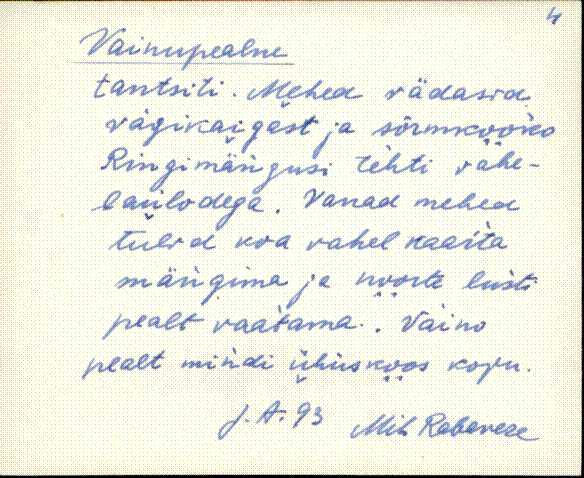 4
Vainupealne
tantsiti. Mehed vädasid
vägikaigast ja sõrmkooko
Ringimängusi tehti vahe-
laulodega. Vanad mehed
tulid koa vahel kaarta
mängima ja noorte lusti
pealt vaatama. Vaino
pealt mindi ühüskoos koju.
J. A. 93 Mih Rabavere